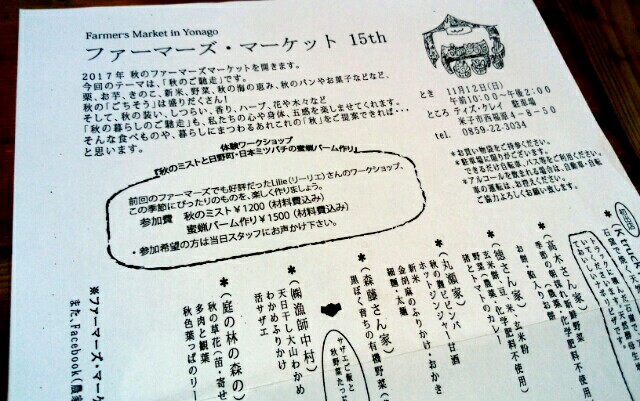 Farmer's Market in Yonago
ファーマーズ・マーケット 15th
2017年 秋のファーマーズマーケットを開きます。
今回のテーマは、「秋のご馳走」です。
栗、お芋、きのこ、新米、野菜、秋の海の恵み、秋のパンやお菓子などなど、
秋の「ごちそう」は盛りだくさん!
そして、秋の装い、しつらい、香り、ハーブ、花や木々など
「秋の暮らしのご馳走」も、私たちの心や身体、五感を楽しませてくれます。
そんな食べものや、暮らしにまつわるあれこれの「秋」をご提案できれば・・・
と思います。
とき 11月12日(日)
午前10:00~午後2:00
ところ テイズ・クレイ 駐車場
米子市西福原4-8-50
tel. 0859-22-3034
*お買い物袋をご持参ください。
*駐車場に限りがございます。
できるだけ自転車、バス等をご利用ください。
*アルコールを飲まれる場合は、自動車・自転
車の運転は、お控えください。
ご協力よろしくお願い致します。
体験ワークショップ
『秋のミストと日野町・日本ミツバチの蜜蝋バーム作り』
前回のファーマーズでも好評だったLilie(リーリエ)さんのワークショップ、
この季節にぴったりのものを、楽しく作りましょう。
参加費 秋のミスト¥1200(材料費込み)
蜜蝋バーム作り¥1500(材料費込み)
・参加希望の方は当日スタッフにお声かけ下さい。
*
(高木さん家)
季節の朝採れ
お餅・餡入り
*
(徳さん家)
玄米
野菜
猪とトマトのカレー
*
(丸瀬家)
秋の薫ビビンバ・甘酒
ホットジンジャー
新米
金胡麻のふりかけ・おかき
細麺・太麺
*
(森藤さん家)
黒ぼく育ちの有機野菜
サザエご飯と
秋野菜たっぷ
*
(㈱漁師中村)
天日干し大山わかめ
わかめふりかけ
活サザエ
*
(庭の林の森の)
秋の草花(苗・寄せ
多肉と観葉
秋色葉っぱのリー
※ファーマーズ・マーケ
また、Facebook(農